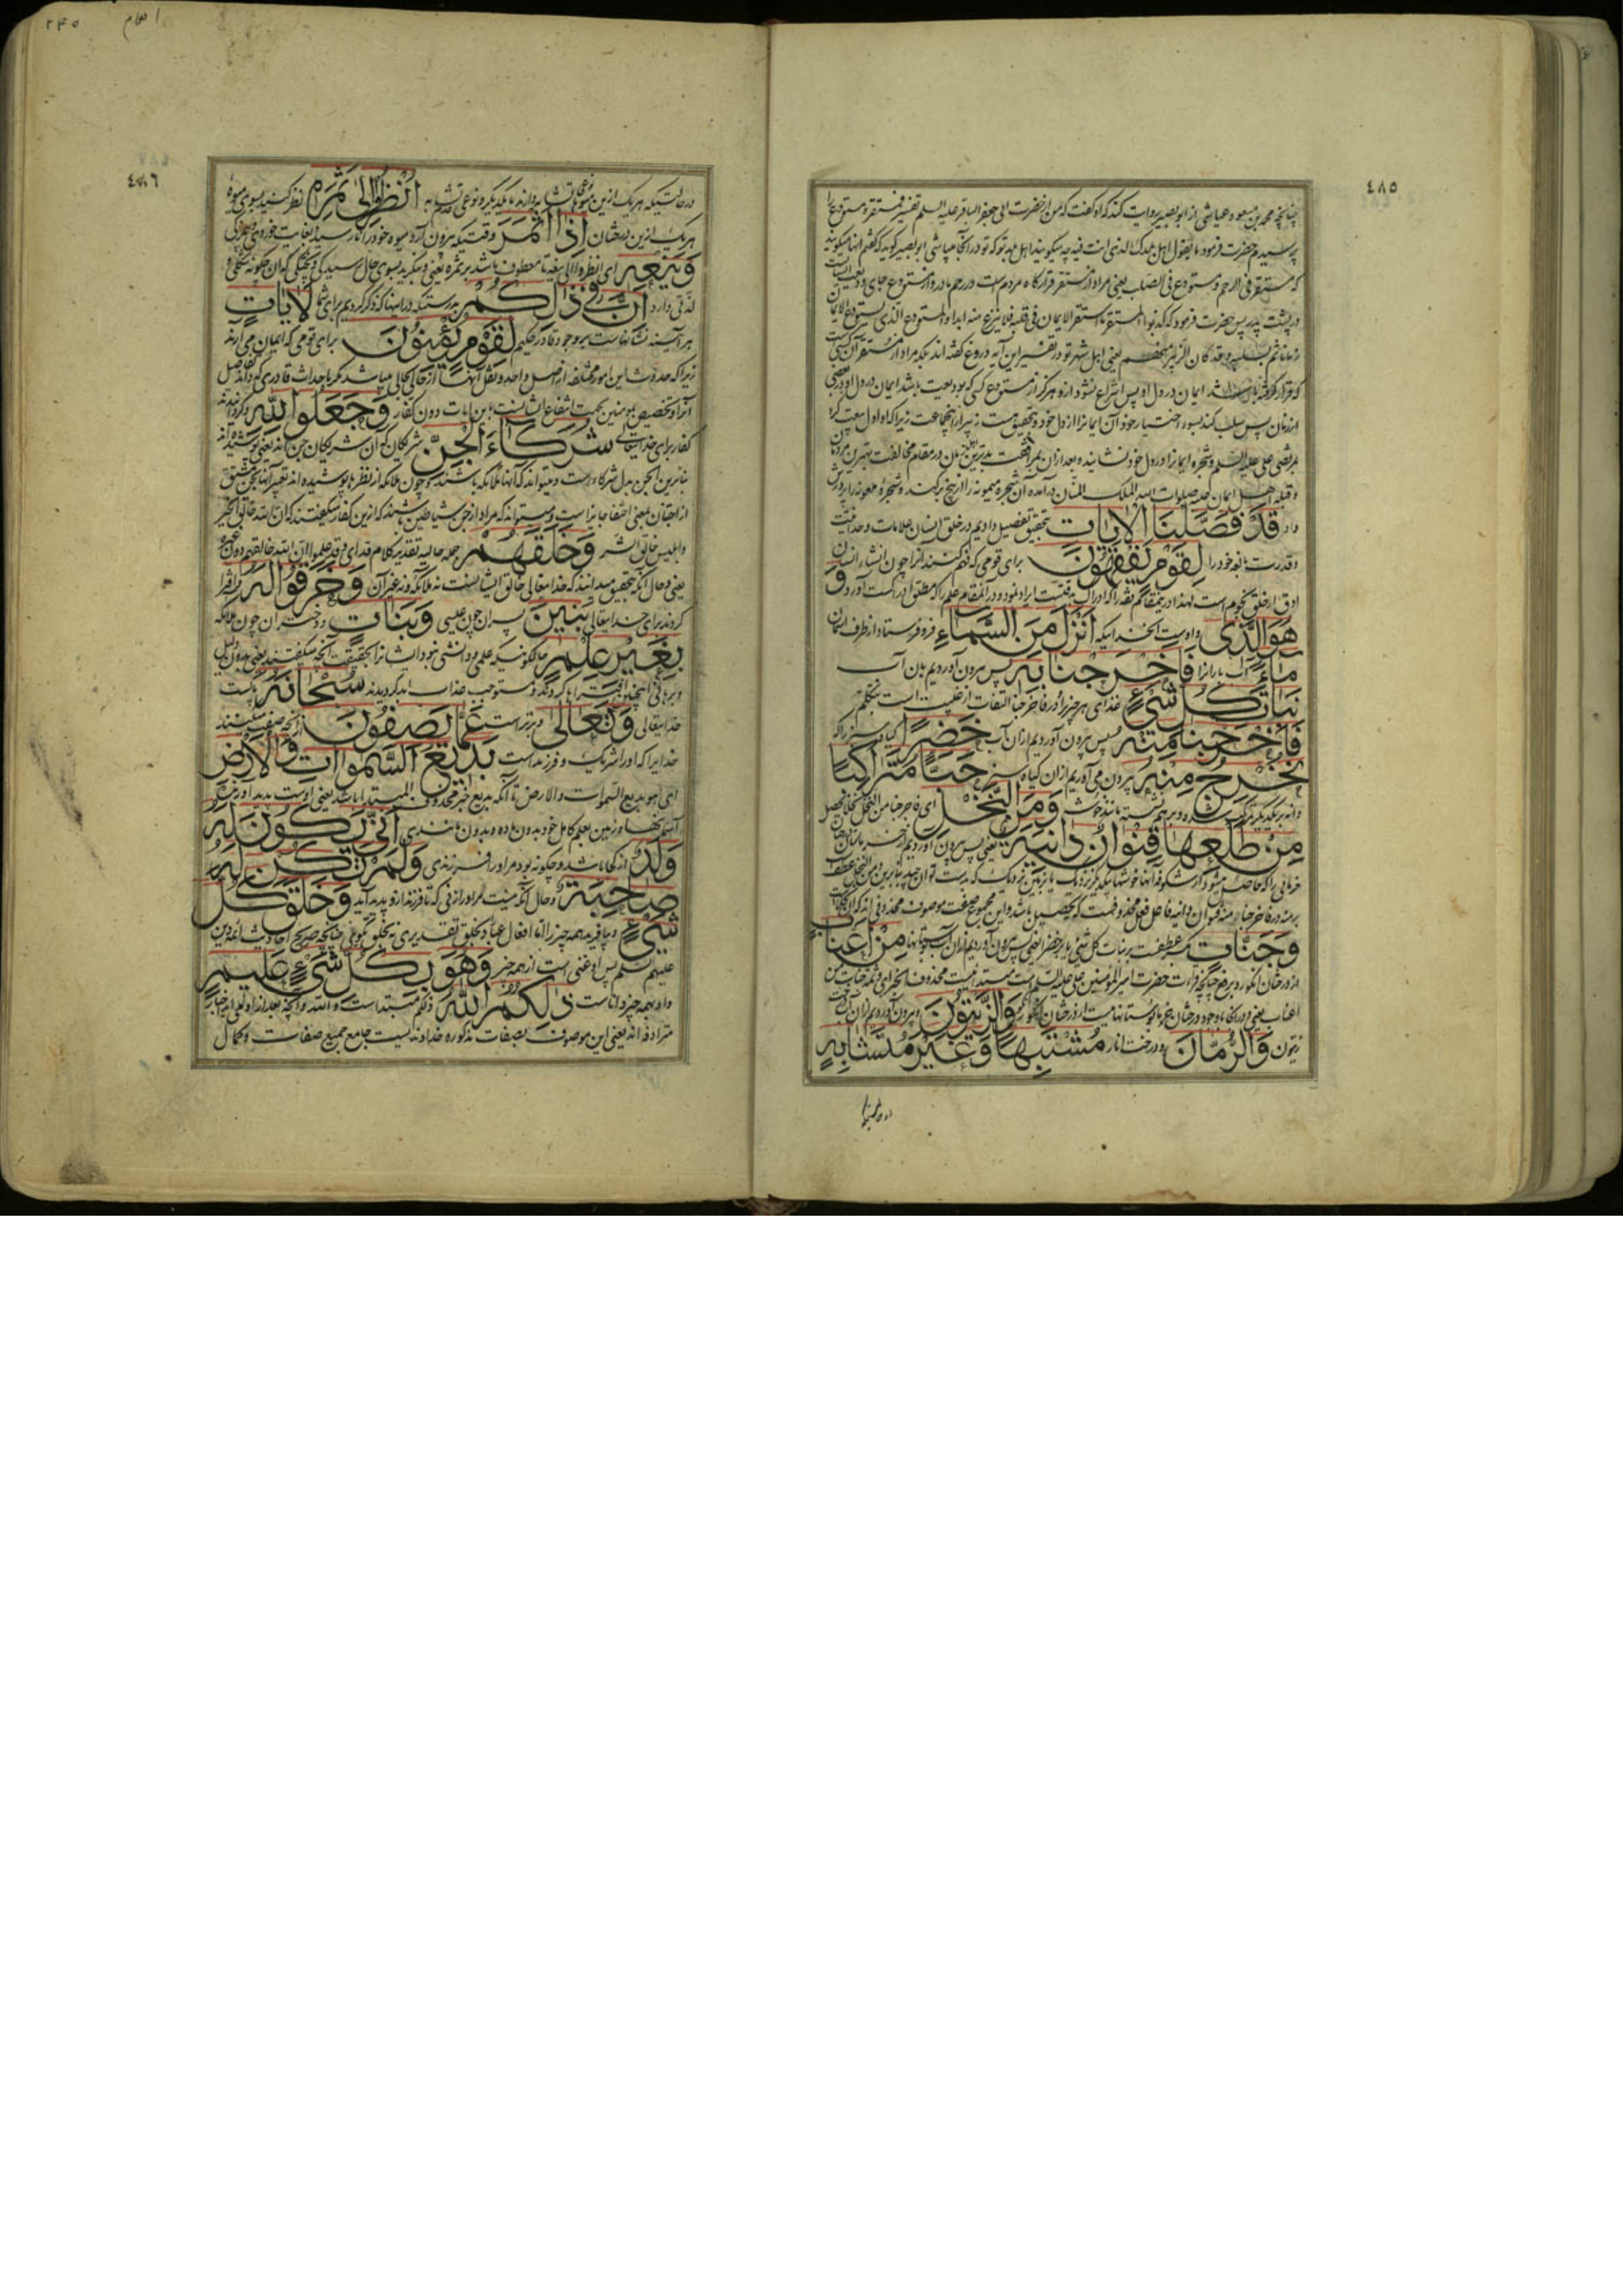 ٤٨٥
چنانچه محمد بن مسعود عیاشی از ابو بصیر روایت کند که او گفت که من از حضرت ابی جعفر الباقر علیه السلم تفسیر فمستقر و مستودع را
پرسیدم حضرت فرمود ما یقول اهل بلدک الذی انت فیه چه میگویند اهل بلد تو که تو در آنجا میباشی ابو بصیر گوید که گفتم آنها میگویند
که مستقر فی الرحم و مستودع فی الصلب یعنی مراد از مستقر قرارگاه مردم است در رحم مادر و از مستودع جای ودیعت
در پشت پدر پس حضرت فرمود که کذبوا المستقر ما استقر الایمان فی قلبه فلا ینزع منه ابدا و المستودع الذی یستودع الایمان
زمانا ثم یسلبه و قد کان الزبیر منهم یعنی اهل شهر تو در تفسیر این آیه دروغ گفته اند بلکه مراد از مستقر آن کسی
که قرار گرفته باشد ایمان در دل او پس انتزاع نشود ازو هرگز و از مستودع کسی که بودیعت باشد ایمان در دل او در بعضی
از زمان پس سلب کند بسوء اختیار خود آن ایمانرا از دل خود و بتحقیق هست زبیر از آنجماعت زیرا که او اول بیعت کرد
بمرتضی علی علیه السلم و شجره ایمانرا در دل خود نشانید و بعد از آن
و قبله اهل ایمان علیه صلوات الله الملک المنان در آمده آن شجره میمونه را از بیخ برکند و شجره ملعونه را پرورش
داد قَدْ فَصَّلْنَا الْآيَاتِ بتحقیق تفصیل دادیم در خلق انسان علامات وحدانیت
و قدرت بالغه خود را لِقَوْمٍ يَفْقَهُونَ برای قومی که فهم کنند آنرا چون انشاء انسان
ادق از خلق نجوم است لهذا در ینمقام فقه را که ادراک دقتست ایراد نمود و در آنمقام علم را که مطلق ادراکست آورد وَ
هُوَ الَّذِي و اوست آنخدائیکه أَنْزَلَ مِنَ السَّمَاءِ فرو فرستاد از طرف آسمان
مَاءً آب بارانرا فَأَخْرَجْنَا بِهِ پس بیرون آوردیم بآن آب
نَبَاتَ كُلِّ شَيْءٍ غذای هر چیز را و در فاخرجنا التفات از غیبت است بتکلم
فَأَخْرَجْنَا مِنْهُ پس بیرون آوردیم از آن آب خَضِرًا گیاه سبز را که
نُخْرِجُ مِنْهُ بیرون می آوریم از آن گیاه سبز حَبًّا مُتَرَاكِبًا
دانه بر یکدیگر مانند خوشه وَمِنَ النَّخْلِ ای فاخرجنا من النخل
مِنْ طَلْعِهَا قِنْوَانٌ دَانِيَةٌ یعنی پس بیرون آوردیم از
خرمائی را که حاصل میشود از شکوفه آنها خوشها بیکدیگر نزدیک یا بزمین نزدیک که بدست توان چید
وَجَنَّاتٍ عطفست بر نبات کل شیء یا بر خضرا یعنی پس بیرون آوردیم از آن آب بوستانها مِنْ أَعْنَابٍ
از درختان انگور و برفع چنانچه قرائت حضرت امیر المؤمنین علی علیه السلم است مبتدائیست محذوف الخبر ای و ثمه جنات من
اعناب یعنی و در آنجا موجود درختان خرما بوستانهاست از درختان انگور وَالزَّيْتُونَ و بیرون آوردیم از آن آب درخت
زیتون وَالرُّمَّانَ و درخت انار مُشْتَبِهًا وَغَيْرَ مُتَشَابِهٍ
در حالتیکه
٢٤٥
انعام
٤٨٦
در حالتیکه هر یک ازین میوها تشابه دارند با یکدیگر و نوعی تشابه انْظُرُوا إِلَىٰ ثَمَرِهِ نظر کنید بسوی میوهٔ
هر یک ازین درختان إِذَا أَثْمَرَ وقتیکه بیرون آرد میوه خود را
وَيَنْعِهِ ای انظروا الی ینعه تا معطوف باشد بر ثمره یعنی و بنگرید بسوی حال رسیدگی و پختگی که آن چگونه
لذتی دارد إِنَّ فِي ذَٰلِكُمْ بدرستیکه در اینها که ذکر کردیم برای شما لَآيَاتٍ
هر آینه نشانهاست بر وجود قادر حکیم لِقَوْمٍ يُؤْمِنُونَ برای قومی که ایمان می آرند
زیرا که حدوث این امور مختلفه از اصل واحد و نقل آنها از حالی بحالی نمیباشد مگر باحداث قادری که داند تفاصیل
آنرا و تخصیص بمومنین بجهت انتفاع ایشانست باین ایات دون کفار وَجَعَلُوا لِلَّهِ و گردانیدند
کفار برای خدایتعالی شُرَكَاءَ الْجِنَّ شریکان که آن شریکان جن اند یعنی پوشیده اند
بنابرین الجن بدل شرکاء است و میتواند که آنها ملائکه باشند و چون ملائکه از نظرها پوشیده اند تعبیر از آنها بجن
از اجتنان بمعنی اختفا جایز است و میتواند که مراد از جن شیاطین باشند که ازین کفار میگفتند که ان الله خالق الخیر
و ابلیس خالق الشر وَخَلَقَهُمْ جمله حالیه بتقدیر کلام قد ای و قد علموا ان الله خالقهم دون غیره
یعنی و حال آنکه بتحقیق میدانند که خدایتعالی خالق ایشانست نه ملائکه و نه غیر آن وَخَرَقُوا لَهُ و افترا
کردند برای خدایتعالی بَنِينَ پسران چون عیسی وَبَنَاتٍ و دختران چون ملائکه
بِغَيْرِ عِلْمٍ حالکونیکه علمی و دانشی نبود ایشانرا بحقیقت آنچه میگفتند یعنی بدون دلیل
و برهانی اینچنین افتراها کردند و مستوجب عذاب ابد گردیدند سُبْحَانَهُ پاکست
خدایتعالی وَتَعَالَىٰ و برترست عَمَّا يَصِفُونَ از آنچه صفت میکنند
خدایرا که او را شریک و فرزند است بَدِيعُ السَّمَاوَاتِ وَالْأَرْضِ
ای هو بدیع السموات و الارض تا آنکه بدیع خبر محذوف المبتدا باشد یعنی اوست پدید آورنده
آسمانها و زمین بعلم کامل خود بدون ماده و بدون مانندی أَنَّىٰ يَكُونُ لَهُ
وَلَدٌ از کجا باشد و چگونه بود مر او را فرزندی وَلَمْ تَكُنْ لَهُ
صَاحِبَةٌ و حال آنکه نیست مر او را زنی که تا فرزند ازو پدید آید وَخَلَقَ كُلَّ
شَيْءٍ و بیافرید همه چیز را اما افعال عباد بخلق تقدیری نه بخلق تکوینی چنانچه صریح احادیث ائمه دین
علیهم السلم پس او غنی است از همه چیز وَهُوَ بِكُلِّ شَيْءٍ عَلِيمٌ
و او بهمه چیز داناست ذَٰلِكُمُ اللَّهُ ذلکم مبتداست و الله و آنچه بعد ازو واقع
مترادفه اند یعنی این موصوف بصفات مذکوره خداوندیست جامع جمیع صفات و کمال